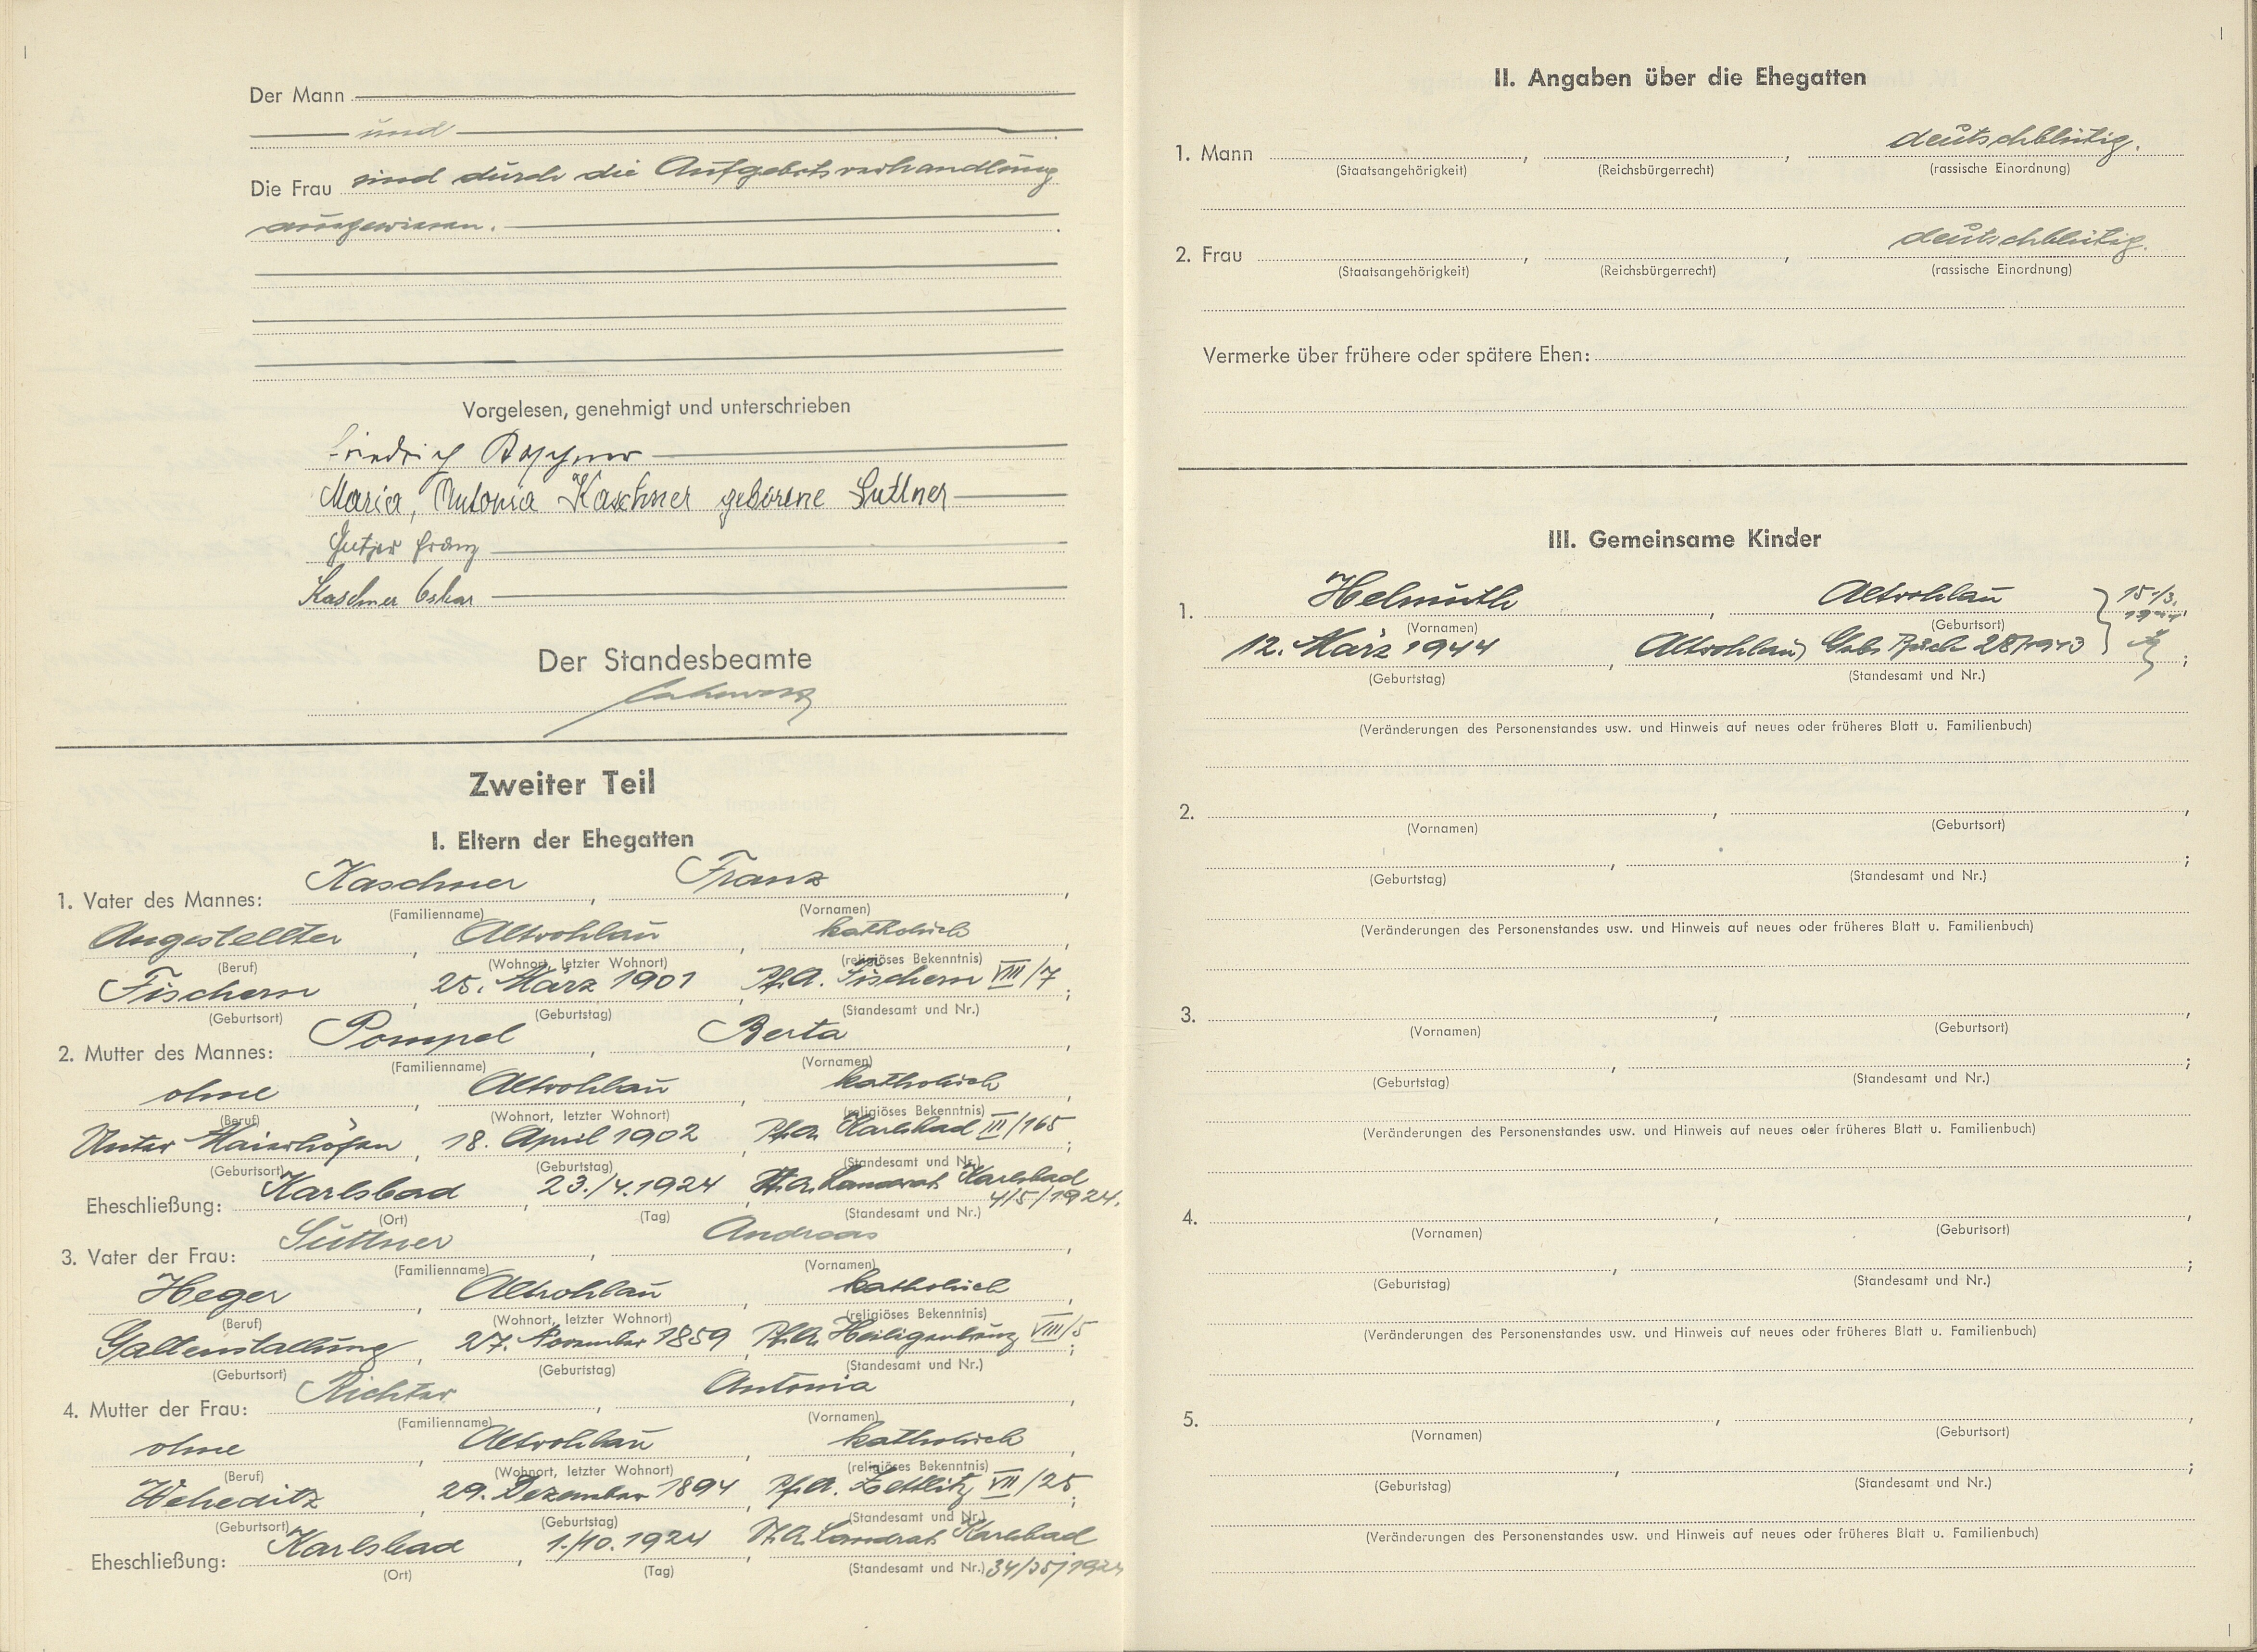 Der Mann
und
Die Frau sind durch die Aufgebotsverhandlung
ausgewiesen.
Vorgelesen, genehmigt und unterschrieben
Friedrich
Maria, Antonia Kaschner geborene Suttner
Franz
Kaschner Oskar
Der Standesbeamte
Zweiter Teil
I. Eltern der Ehegatten
1. Vater des Mannes: Kaschner, Franz,
(Familienname) (Vornamen)
Angestellter, Altrohlau, katholisch,
(Beruf) (Wohnort, letzter Wohnort) (religiöses Bekenntnis)
Fischern, 25. März 1901, Pf.A. Fischern VIII/7;
(Geburtsort) (Geburtstag) (Standesamt und Nr.)
2. Mutter des Mannes: Pompel, Berta,
(Familienname) (Vornamen)
ohne, Altrohlau, katholisch,
(Beruf) (Wohnort, letzter Wohnort) (religiöses Bekenntnis)
Unter Maierhöfen, 18. April 1902, Pf.A. Karlsbad III/165;
(Geburtsort) (Geburtstag) (Standesamt und Nr.)
Eheschließung: Karlsbad, 23./4.1924, St.A. Landrat Karlsbad
4/5/1924.
(Ort) (Tag) (Standesamt und Nr.)
3. Vater der Frau: Suttner, Andreas,
(Familienname) (Vornamen)
Heger, Altrohlau, katholisch,
(Beruf) (Wohnort, letzter Wohnort) (religiöses Bekenntnis)
Galtenstallung, 27. November 1859, Pf.A. Heiligenkreuz VIII/5;
(Geburtsort) (Geburtstag) (Standesamt und Nr.)
4. Mutter der Frau: Richter, Antonia,
(Familienname) (Vornamen)
ohne, Altrohlau, katholisch,
(Beruf) (Wohnort, letzter Wohnort) (religiöses Bekenntnis)
Weheditz, 29. Dezember 1894, Pf.A. Zettlitz VII/25;
(Geburtsort) (Geburtstag) (Standesamt und Nr.)
Eheschließung: Karlsbad, 1./10.1924, St.A. Landrat Karlsbad
(Ort) (Tag) (Standesamt und Nr.) 34/35/1924
II. Angaben über die Ehegatten
1. Mann , , deutschblütig.
(Staatsangehörigkeit) (Reichsbürgerrecht) (rassische Einordnung)
2. Frau , , deutschblütig.
(Staatsangehörigkeit) (Reichsbürgerrecht) (rassische Einordnung)
Vermerke über frühere oder spätere Ehen:
III. Gemeinsame Kinder
1. Helmuth, Altrohlau } 15./3.
(Vornamen) (Geburtsort) 1944
12. März 1944, Altrohlau, Geb. Buch 28/1943;
(Geburtstag) (Standesamt und Nr.)
(Veränderungen des Personenstandes usw. und Hinweis auf neues oder früheres Blatt u. Familienbuch)
2. , ,
(Vornamen) (Geburtsort)
, ;
(Geburtstag) (Standesamt und Nr.)
(Veränderungen des Personenstandes usw. und Hinweis auf neues oder früheres Blatt u. Familienbuch)
3. , ,
(Vornamen) (Geburtsort)
, ;
(Geburtstag) (Standesamt und Nr.)
(Veränderungen des Personenstandes usw. und Hinweis auf neues oder früheres Blatt u. Familienbuch)
4. , ,
(Vornamen) (Geburtsort)
, ;
(Geburtstag) (Standesamt und Nr.)
(Veränderungen des Personenstandes usw. und Hinweis auf neues oder früheres Blatt u. Familienbuch)
5. , ,
(Vornamen) (Geburtsort)
, ;
(Geburtstag) (Standesamt und Nr.)
(Veränderungen des Personenstandes usw. und Hinweis auf neues oder früheres Blatt u. Familienbuch)